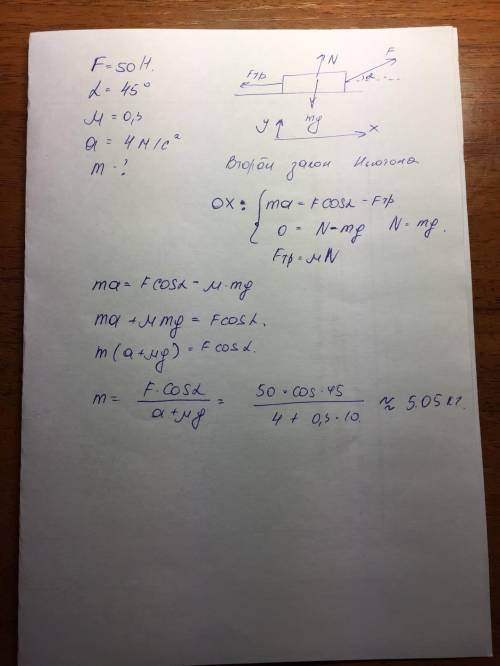 F = 50 Н.
α = 45°
μ = 0,3
a = 4 м/с²
m - ?
N
F
Fтр
α
mg
y
x
Второй закон Ньютона
OX: { ma = Fcosα - Fтр
0 = N - mg   N = mg.
Fтр = μN
ma = Fcosα - μ·mg
ma + μmg = Fcosα.
m(a+μg) = Fcosα.
m = F·cosα / a+μg = 50·cos·45 / 4 + 0,3·10 ≈ 5.05 кг.